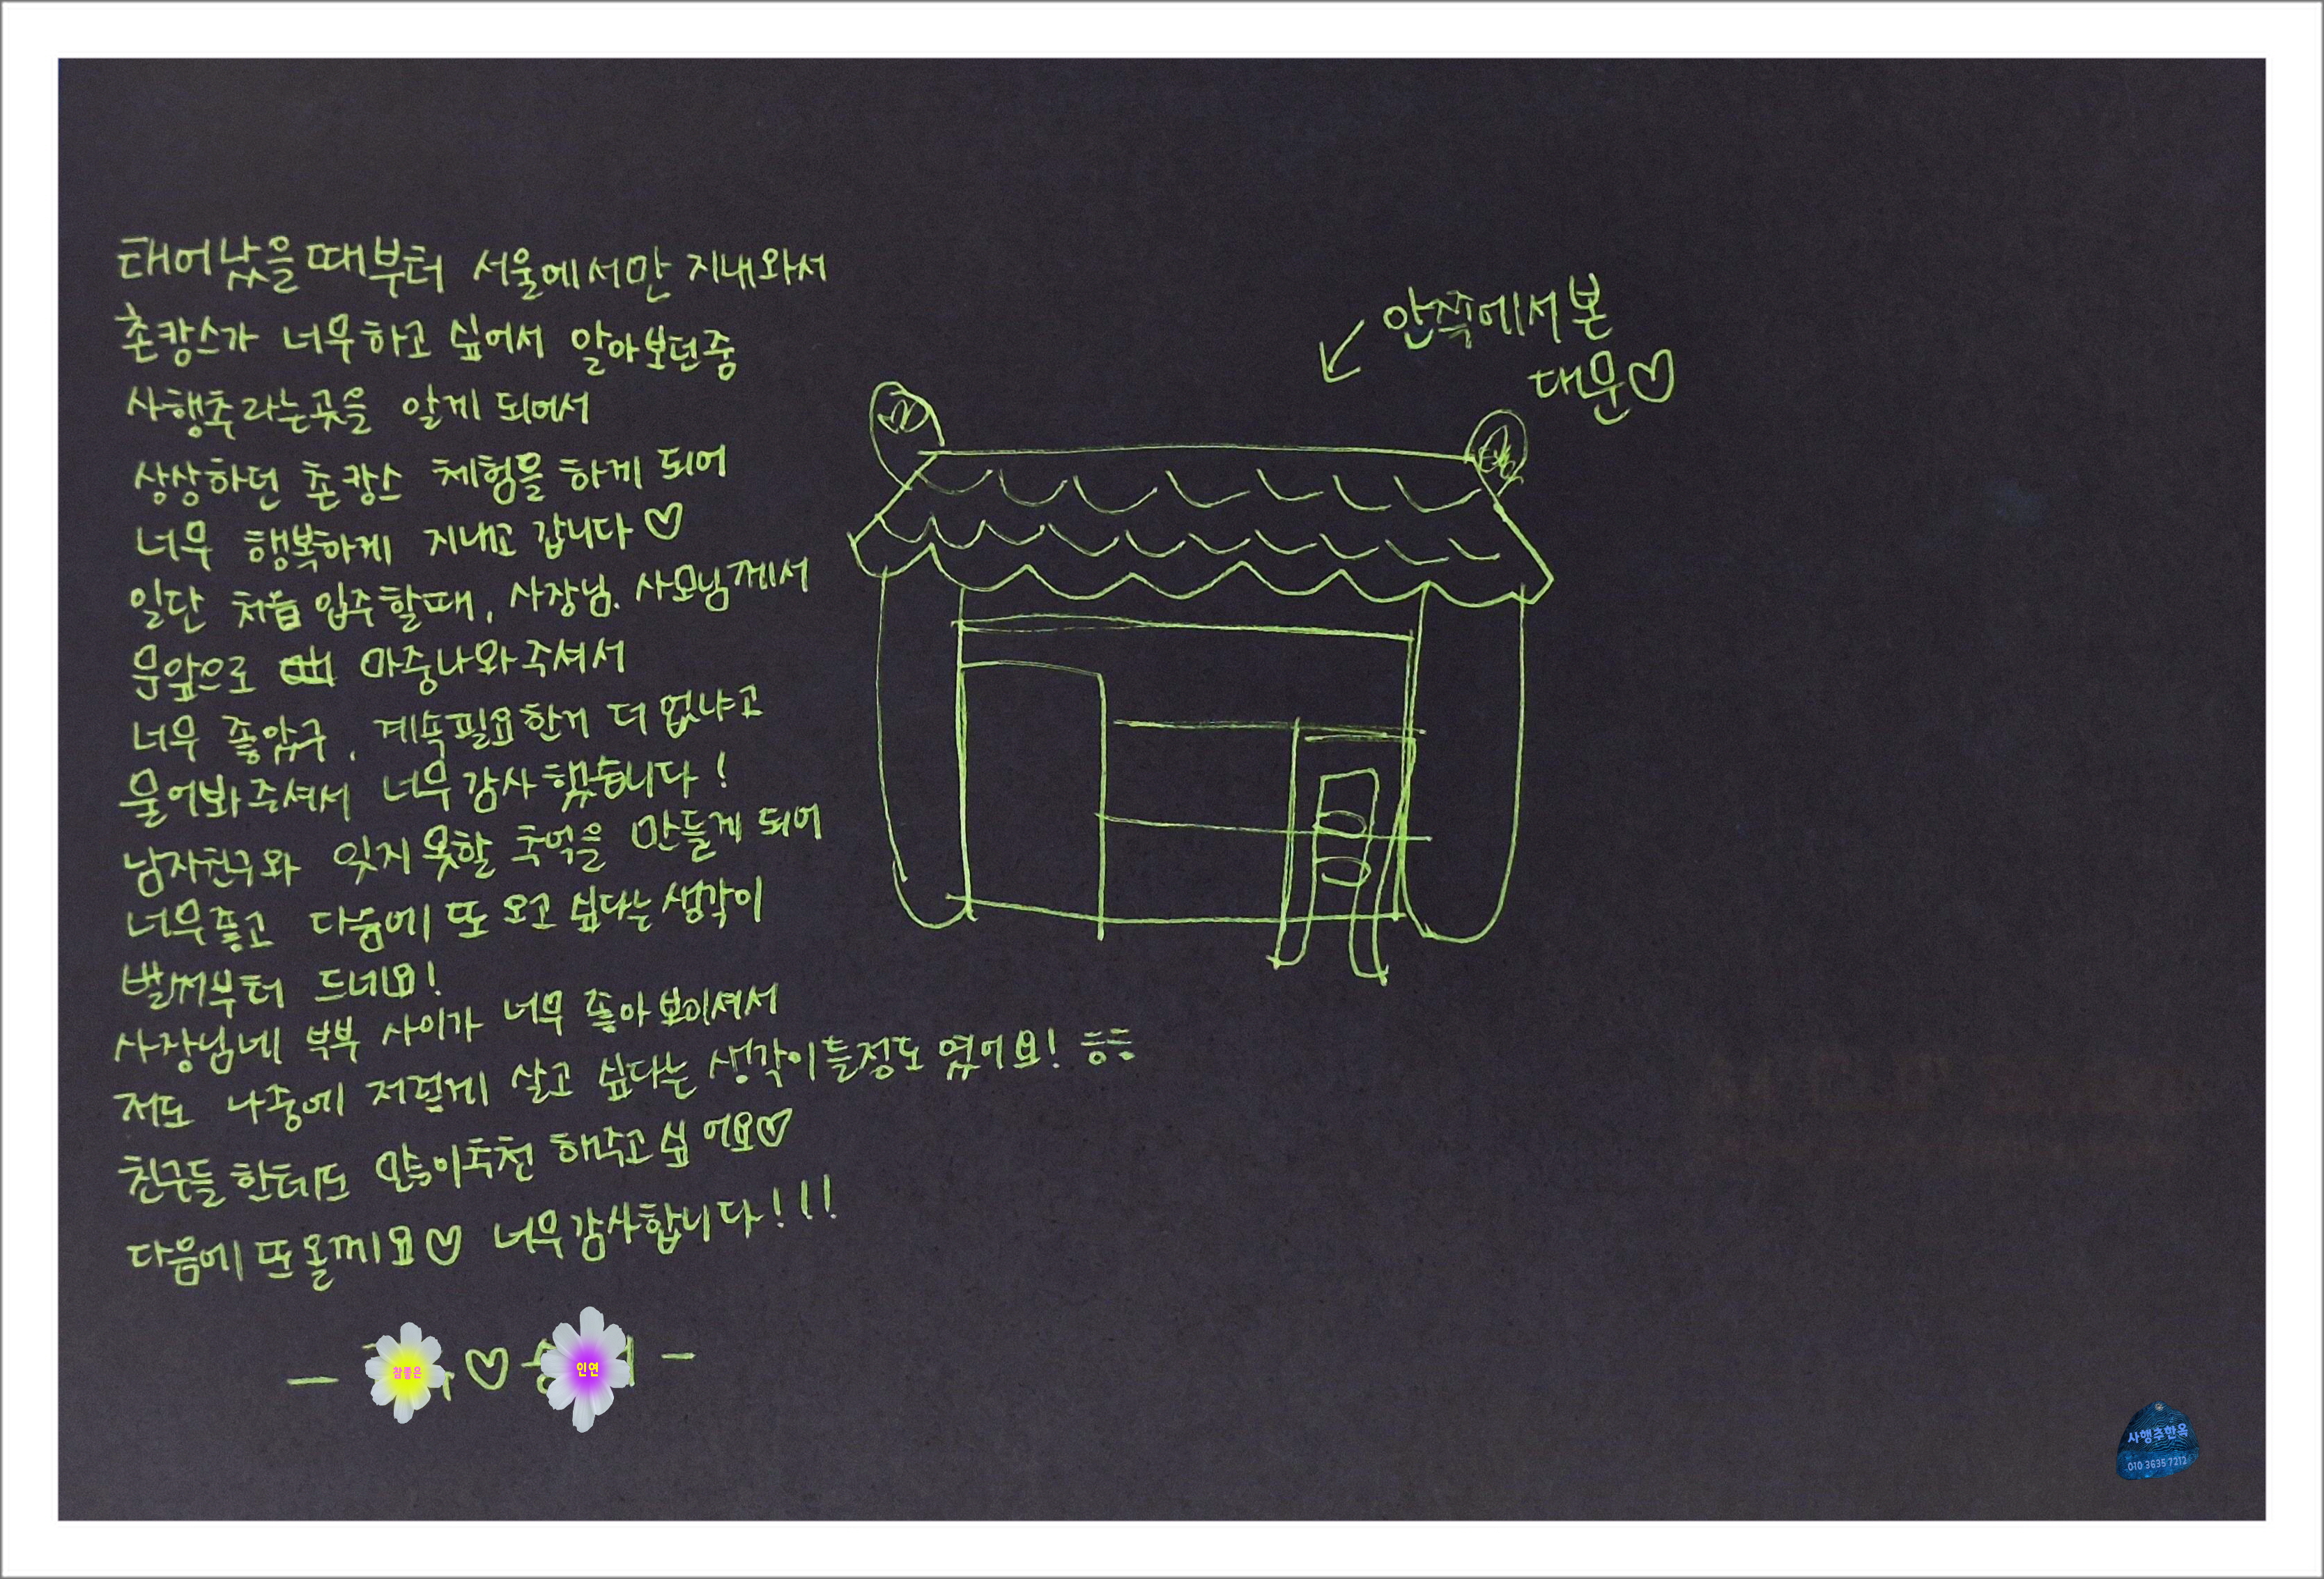 태어났을때부터 서울에서만 지내와서
촌캉스가 너무하고 싶어서 알아보던중
사행추라는곳을 알게 되어서
상상하던 촌캉스 체험을 하게 되어
너무 행복하게 지내고 갑니다♡
일단 처음 입주할때, 사장님. 사모님께서
문앞으로 마중나와주셔서
너무 좋았구, 계속필요한거 더 없냐고
물어봐주셔서 너무감사했습니다!
남자친구와 잊지 못할 추억을 만들게 되어
너무좋고 다음에 또 오고 싶다는생각이
벌써부터 드네요!
사장님네 부부 사이가 너무 좋아보이셔서
저도 나중에 저렇게 살고 싶다는 생각이들정도 였어요! ㅎㅎ
친구들한테도 많이추천 해주고싶어요♡
다음에 또 올께요♡ 너무감사합니다!!!
참좋은 ♡ 인연
안쪽에서본
대문♡
사행추한옥
010 3635 7212